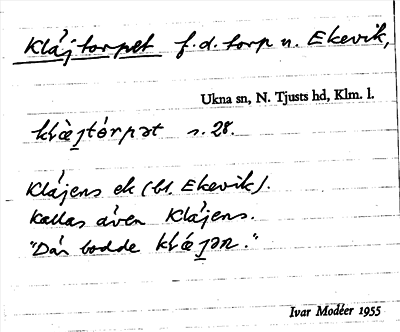 Klájtorpet f.d. torp u. Ekevik,
Ukna sn, N. Tjusts hd, Klm. l.
s. 28.
Klájens ek (bl. Ekevik).
Kallas även Klájens.
"Där bodde
Ivar Modéer 1955